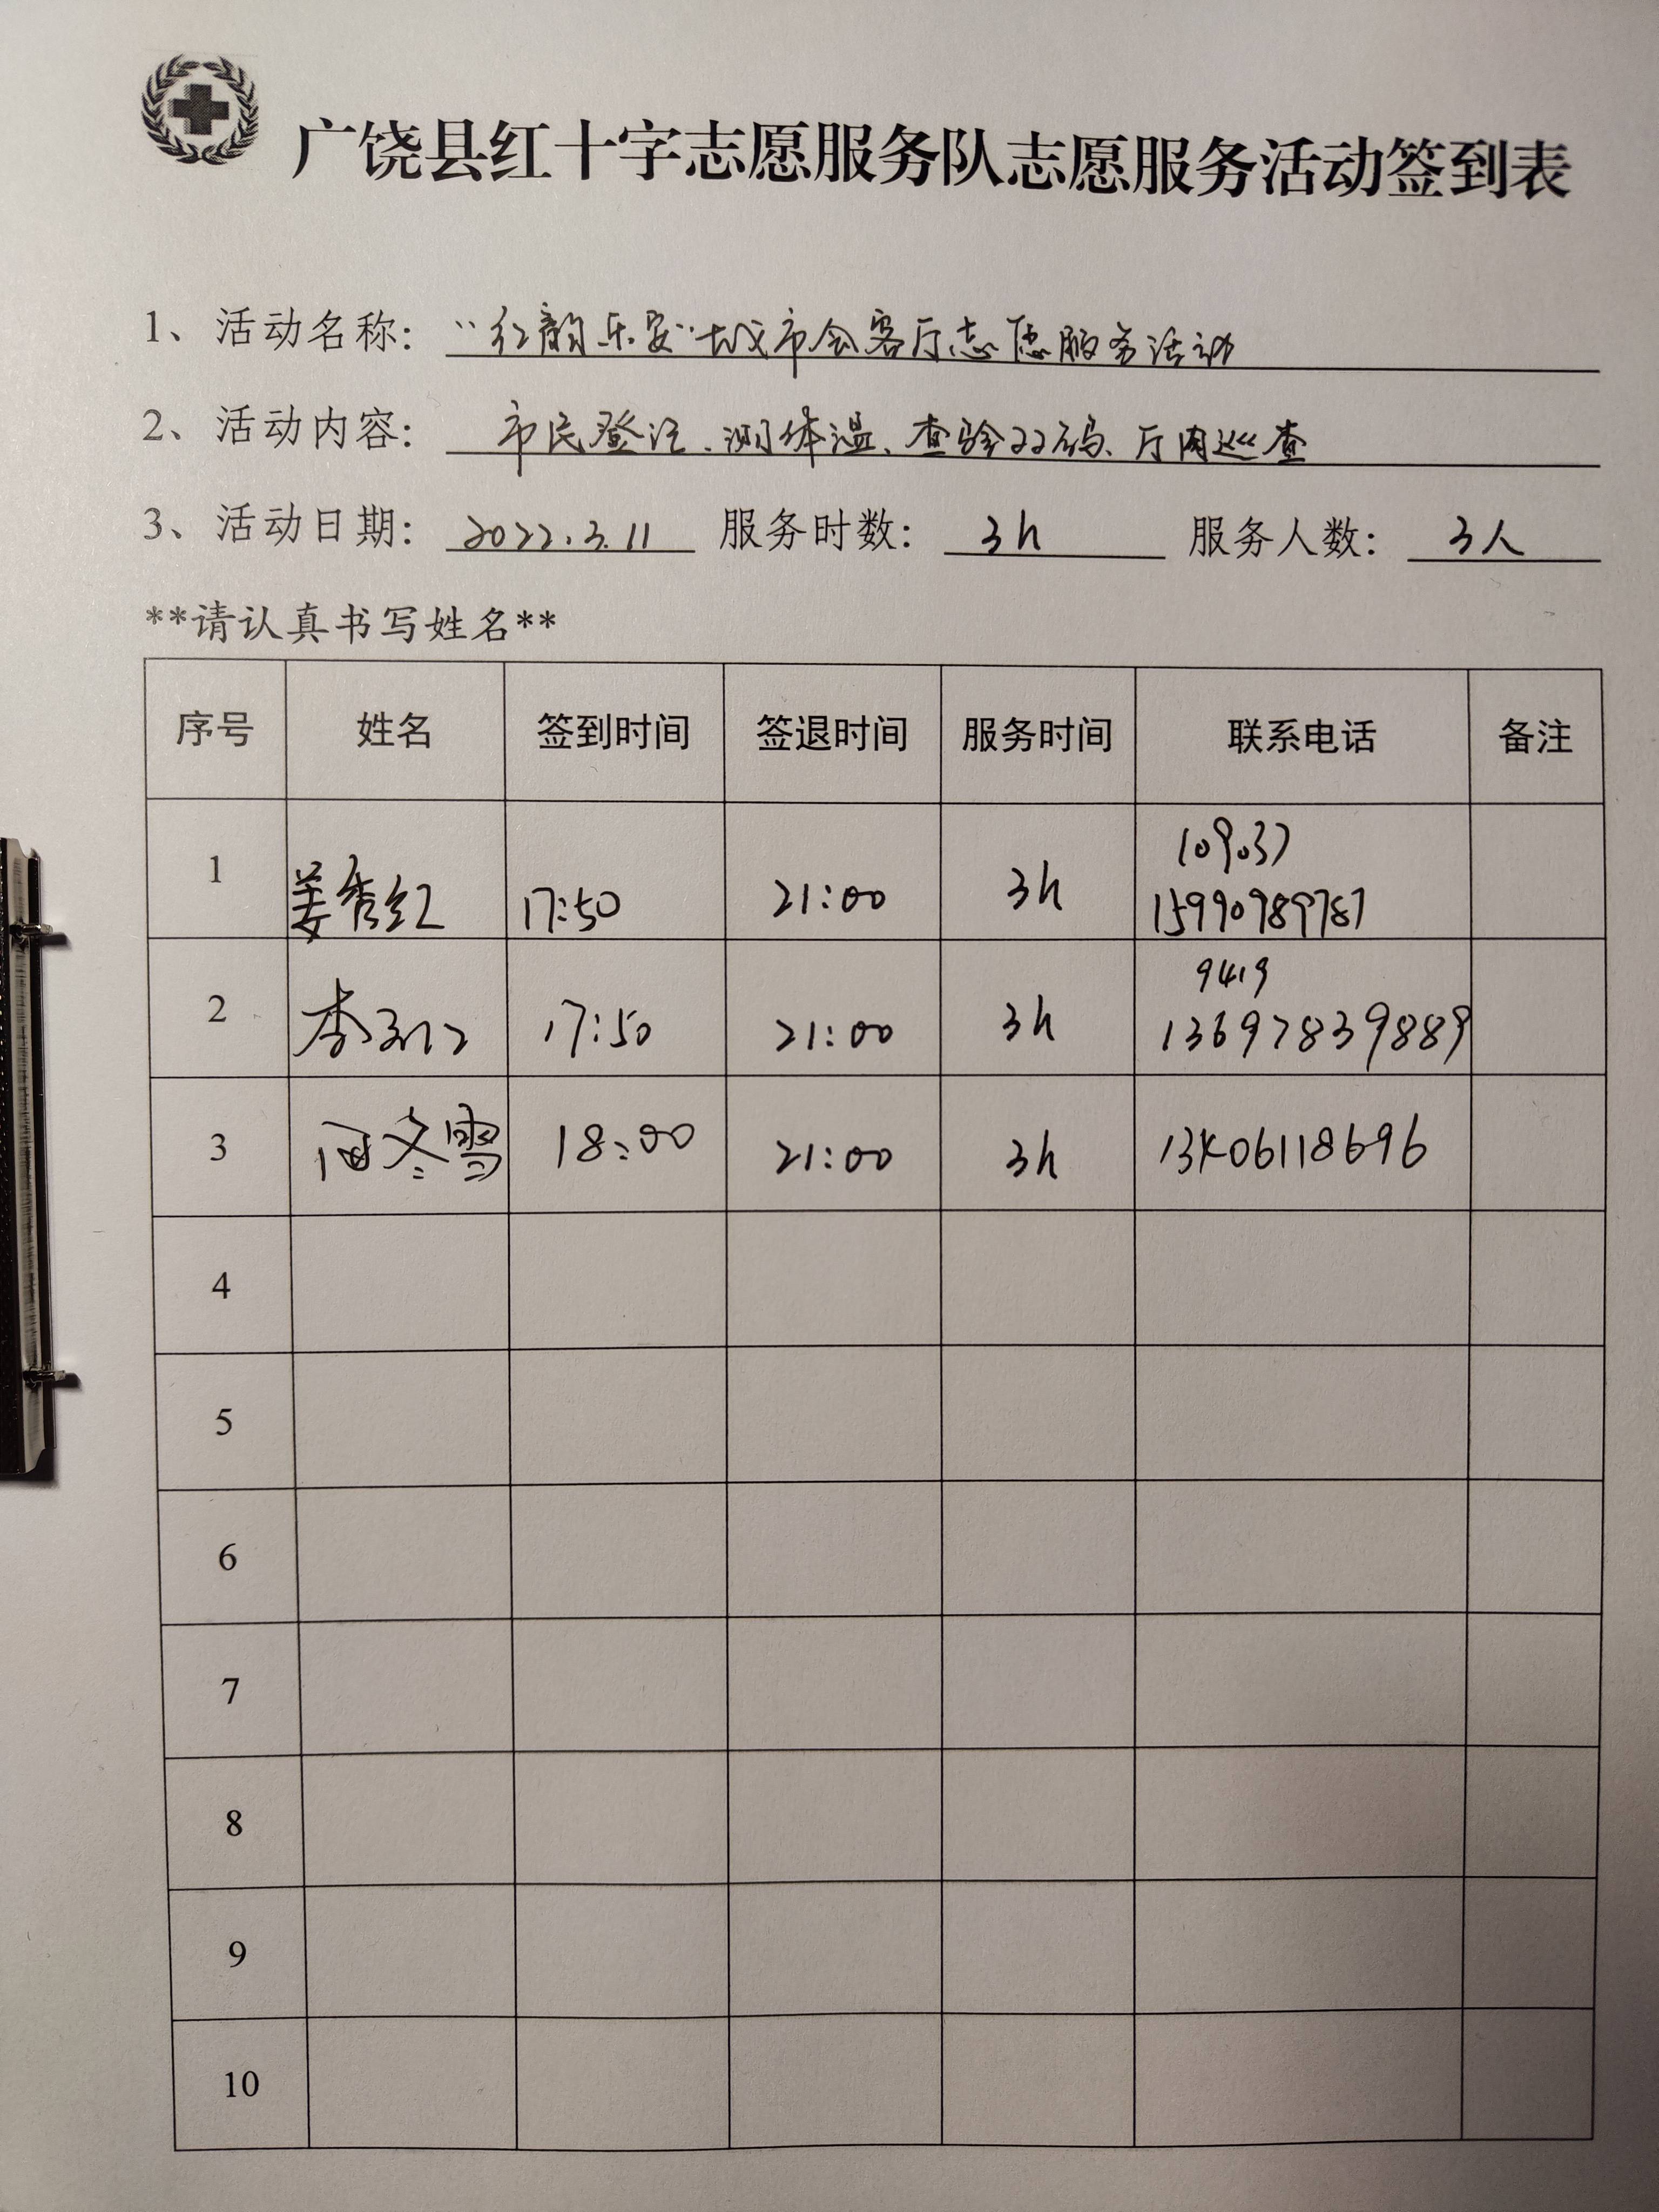 广饶县红十字志愿服务队志愿服务活动签到表
1、活动名称：“红韵乐安”城市会客厅志愿服务活动
2、活动内容：市民登记、测体温、查验双码、厅内巡查
3、活动日期：2022.3.11 服务时数：3h 服务人数：3人
**请认真书写姓名**
序号 姓名 签到时间 签退时间 服务时间 联系电话 备注
109037
1 姜秀红 17:50 21:00 3h 15990989787
9419
2 李 17:50 21:00 3h 13697839889
3 冬雪 18:00 21:00 3h 13406118696
4
5
6
7
8
9
10